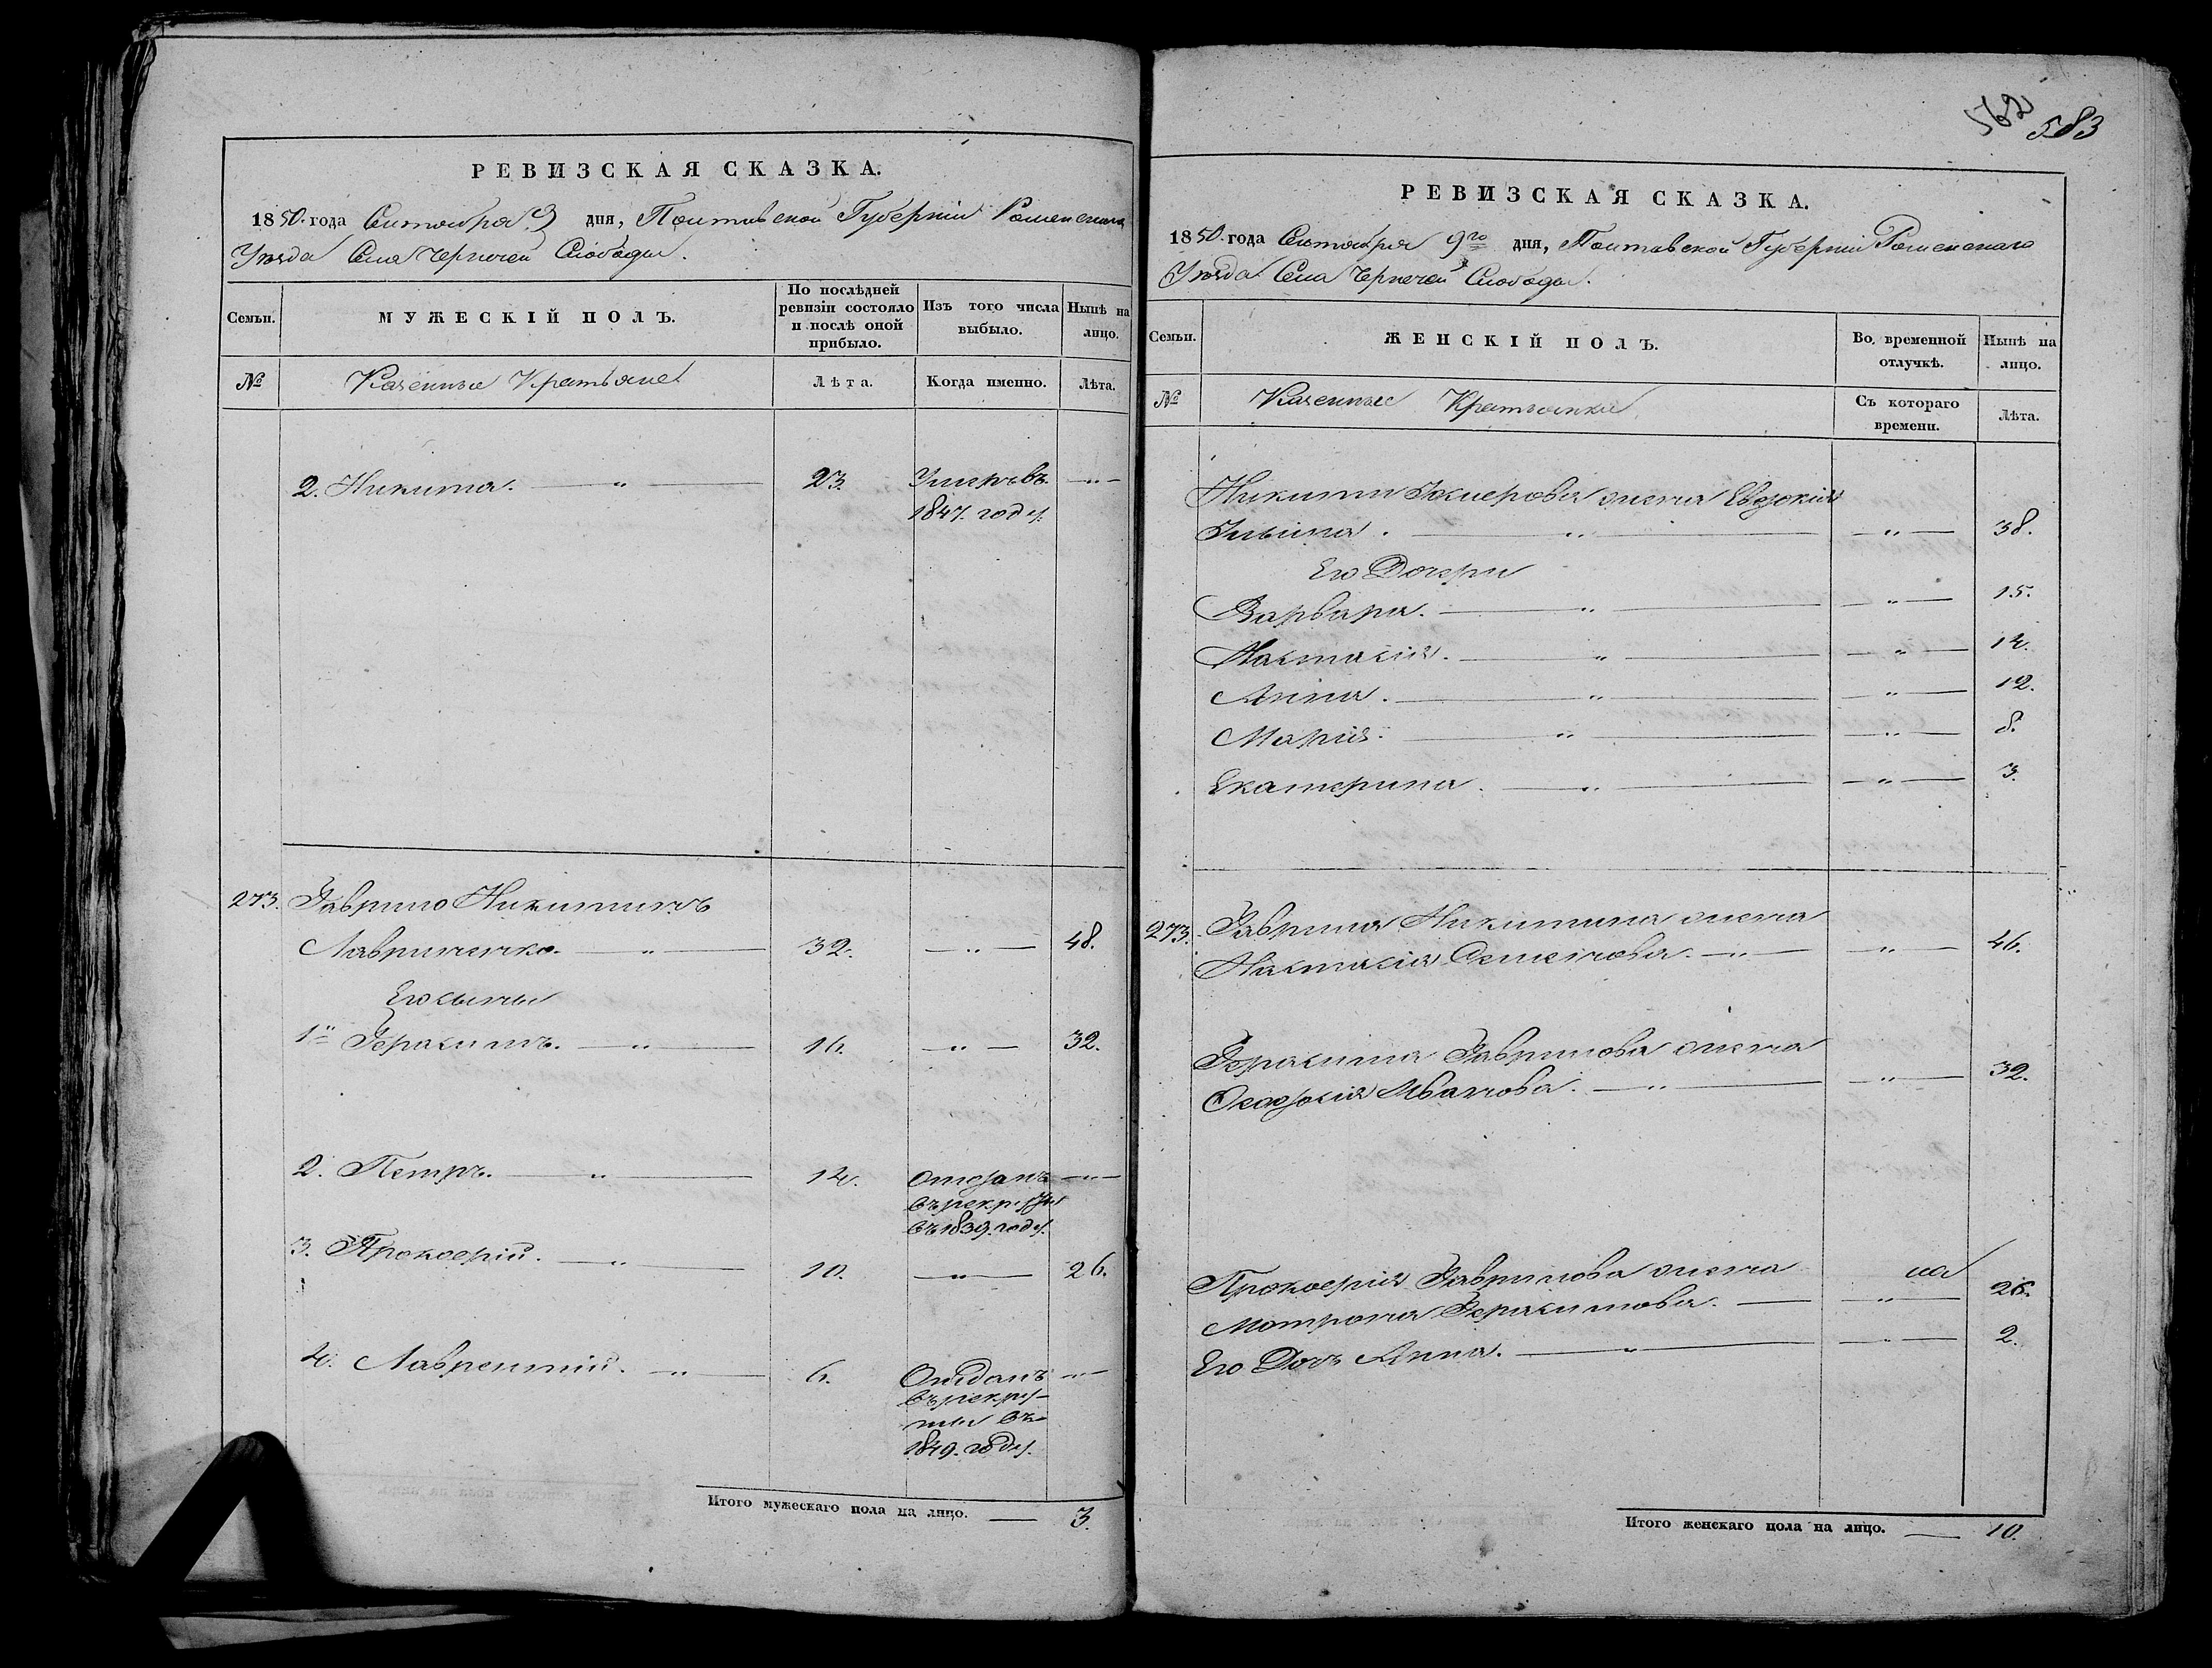 РЕВИЗСКАЯ СКАЗКА.
1850. года Сентября 9 дня, Полтавской Губерніи Роменскаго
Уѣзда Села Чернечей Слободы.
Семьи.
МУЖЕСКІЙ ПОЛЪ.
По послѣдней
ревизіи состояло
и послѣ оной
прибыло.
Изъ того числа
выбыло.
Нынѣ на
лицо.
№
Казенные Крестьяне
Лѣта.
Когда именно.
Лѣта.
2. Никита. — " — 23. Умеръ въ — " —
1847. году.
273. Гаврило Никитинъ
Лавриненко. — " — 32. — " — 48.
Его сыны
1й Герасимъ. — " — 16. — " — 32.
2. Петръ. — " — 14. Отданъ — " —
въ рекруты
въ 1839. году.
3. Прокофій. — " — 10. — " — 26.
4. Лаврентій. — " — 6. Отданъ — " —
въ рекру-
ты въ
1849. году.
Итого мужескаго пола на лицо. — 3.
562 583
РЕВИЗСКАЯ СКАЗКА.
1850. года Сентября 9го дня, Полтавской Губерніи Роменскаго
Уѣзда Села Чернечей Слободы.
Семьи.
ЖЕНСКІЙ ПОЛЪ.
Во временной
отлучкѣ.
Нынѣ на
лицо.
№
Казенные Крестьянки
Съ котораго
времени.
Лѣта.
Никиты жена Евдокія
Ильина. — " — — " — 38.
Его Дочери
Варвара. — " — — " — 15.
Настасія. — " — — " — 14.
Анна. — " — — " — 12.
Марія. — " — — " — 8.
Екатерина. — " — — " — 3.
273. Гаврила Никитина жена
Настасія Семенова. — " — — " — 46.
Герасима Гаврилова жена
Феодосія Иванова. — " — — " — 32.
Прокофія Гаврилова жена
Матрона Герасимова. — — " — 26.
Его Дочь Анна. — " — — " — 2.
Итого женскаго пола на лицо. — 10.